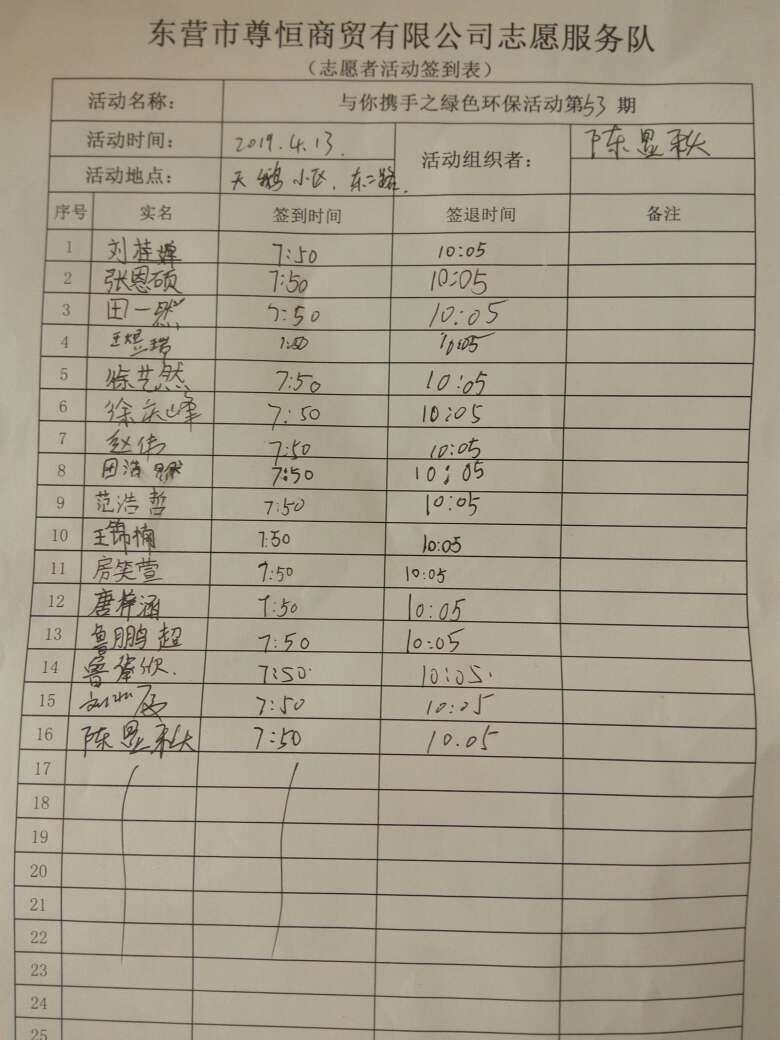 东营市尊恒商贸有限公司志愿服务队
（志愿者活动签到表）
活动名称： 与你携手之绿色环保活动第53期
活动时间： 2019.4.13. 活动组织者： 陈显秋
活动地点： 天鹅小区、东二路.
序号 实名 签到时间 签退时间 备注
1 刘桂婵 7:50 10:05
2 张恩硕 7:50 10:05
3 田一然 7:50 10:05
4 王煜瑞 7:50 10:05
5 徐艺然 7:50 10:05
6 徐庆峰 7:50 10:05
7 赵伟 7:50 10:05
8 田浩 7:50 10:05
9 范浩哲 7:50 10:05
10 王锦楠 7:50 10:05
11 房笑萱 7:50 10:05
12 唐梓涵 7:50 10:05
13 鲁鹏超 7:50 10:05
14 鲁 欣. 7:50. 10:05.
15 7:50 10:05
16 陈显秋 7:50 10.05
17
18
19
20
21
22
23
24
25